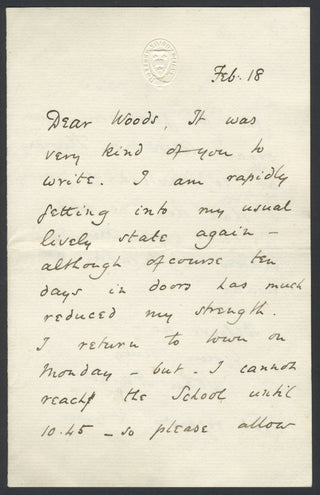 Feb: 18
Dear Woods, It was
very kind of you to
write. I am rapidly
getting into my usual
lively state again –
although of course ten
days in doors has much
reduced my strength.
I return to town on
Monday – but – I cannot
reach the School until
10.45 – so please allow